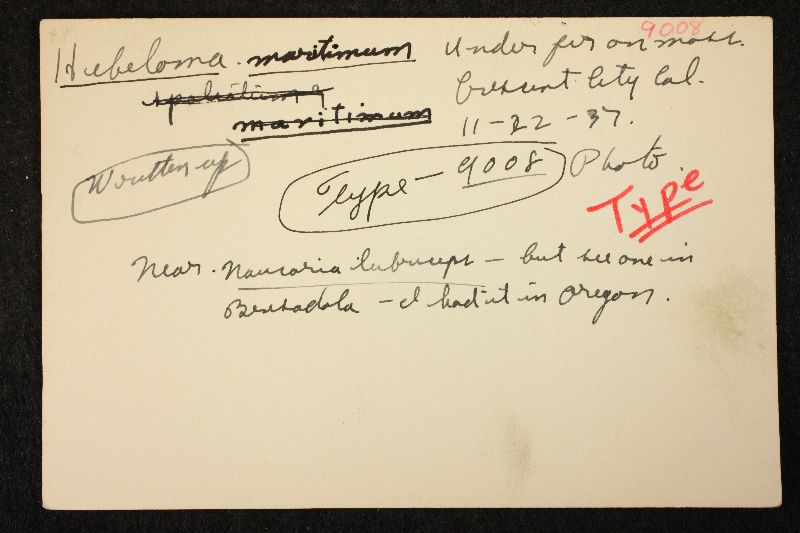 9008
Hebeloma. maritimum
spoliatum ?
maritimum
Under fir on moss.
Crescent City Cal.
11-22-37.
Written up
Type - 9008
Photo.
Type
Near. Naucoria lubriceps - but see one in
- I had it in Oregon.